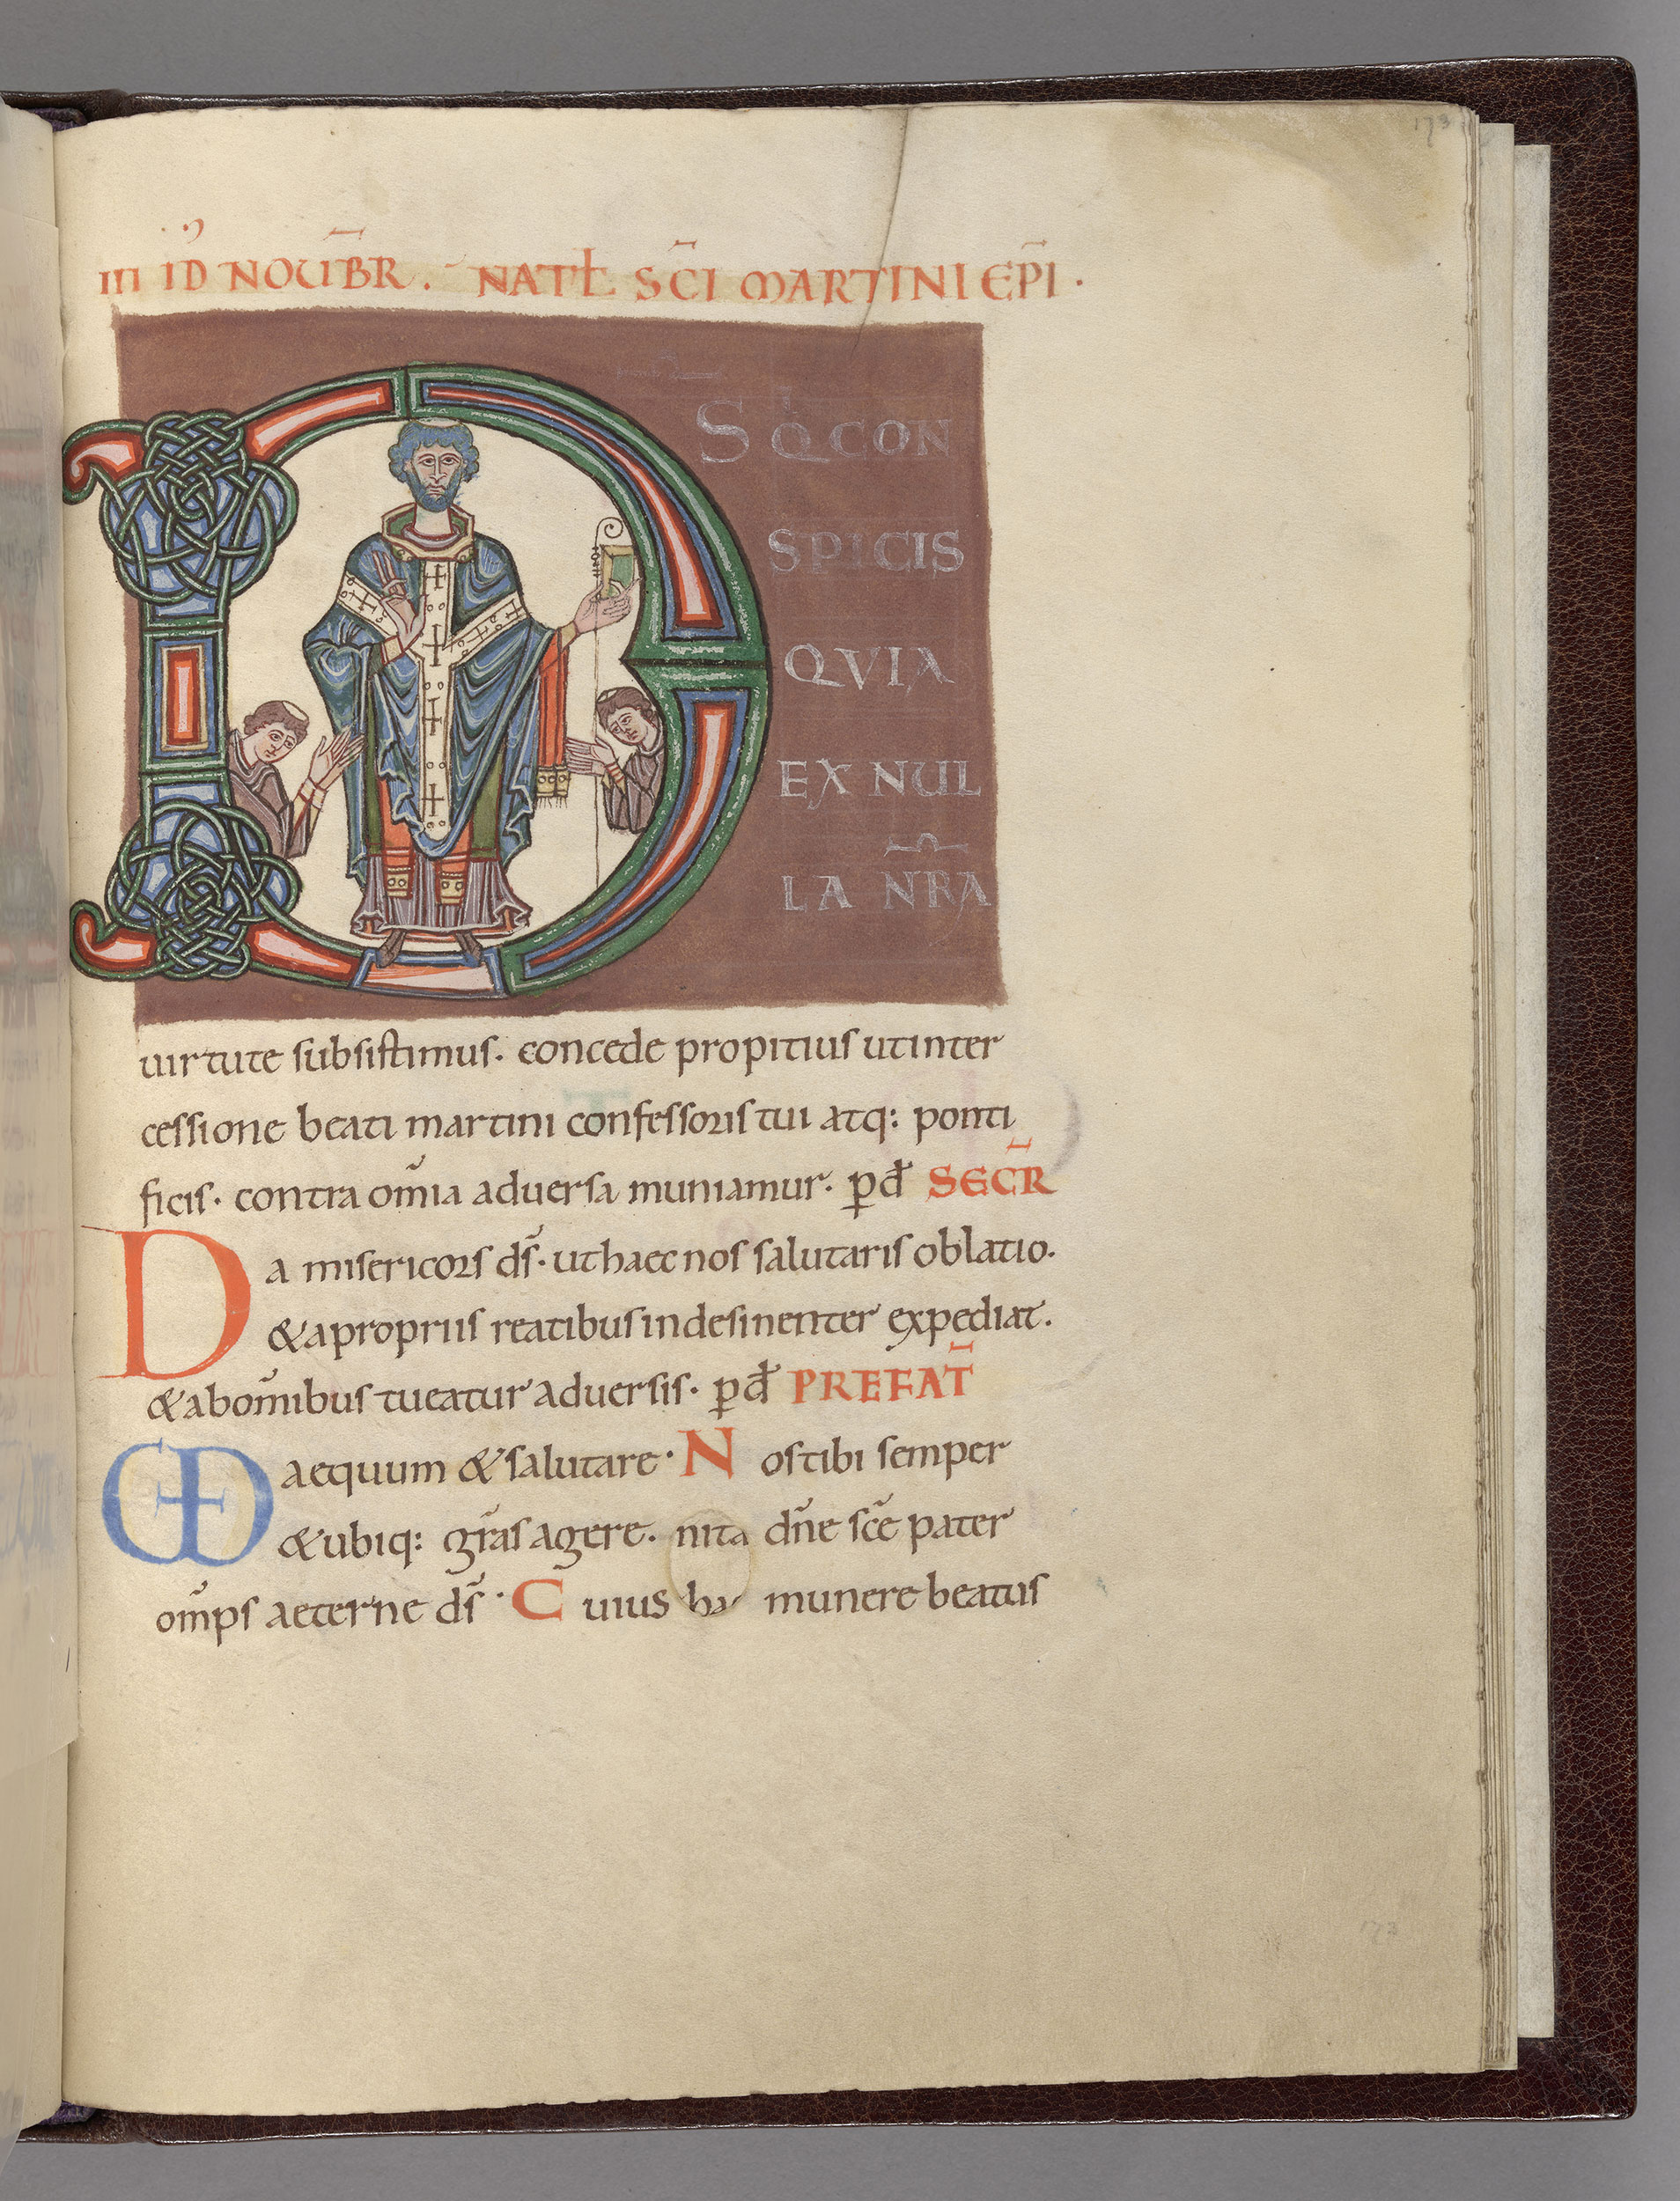 173
III ID NOUB̄R. NATŁ SC̄I MARTINI EP̄I.
D S Q̇ CON
SPICIS
QVIA
EX NUL
LA NR̄A
uirtute subsistimus. concede propitius utinter
cessione beati martini confessoris tui atq: ponti
ficis. contra om̄ia aduersa muniamur. ꝑd̄ SECR̄
Da misericors ds̄. ut haec nos salutaris oblatio.
& a propriis reatibus indesinenter expediat.
& ab om̄ibus tueatur aduersis. ꝑd̄ PREFAT̄
VD aequum & salutare. Nos tibi semper
& ubiq: gr̄as agere. dn̄e sc̄e pater
om̄ps aeterne ds̄. Cuius munere beatus
173